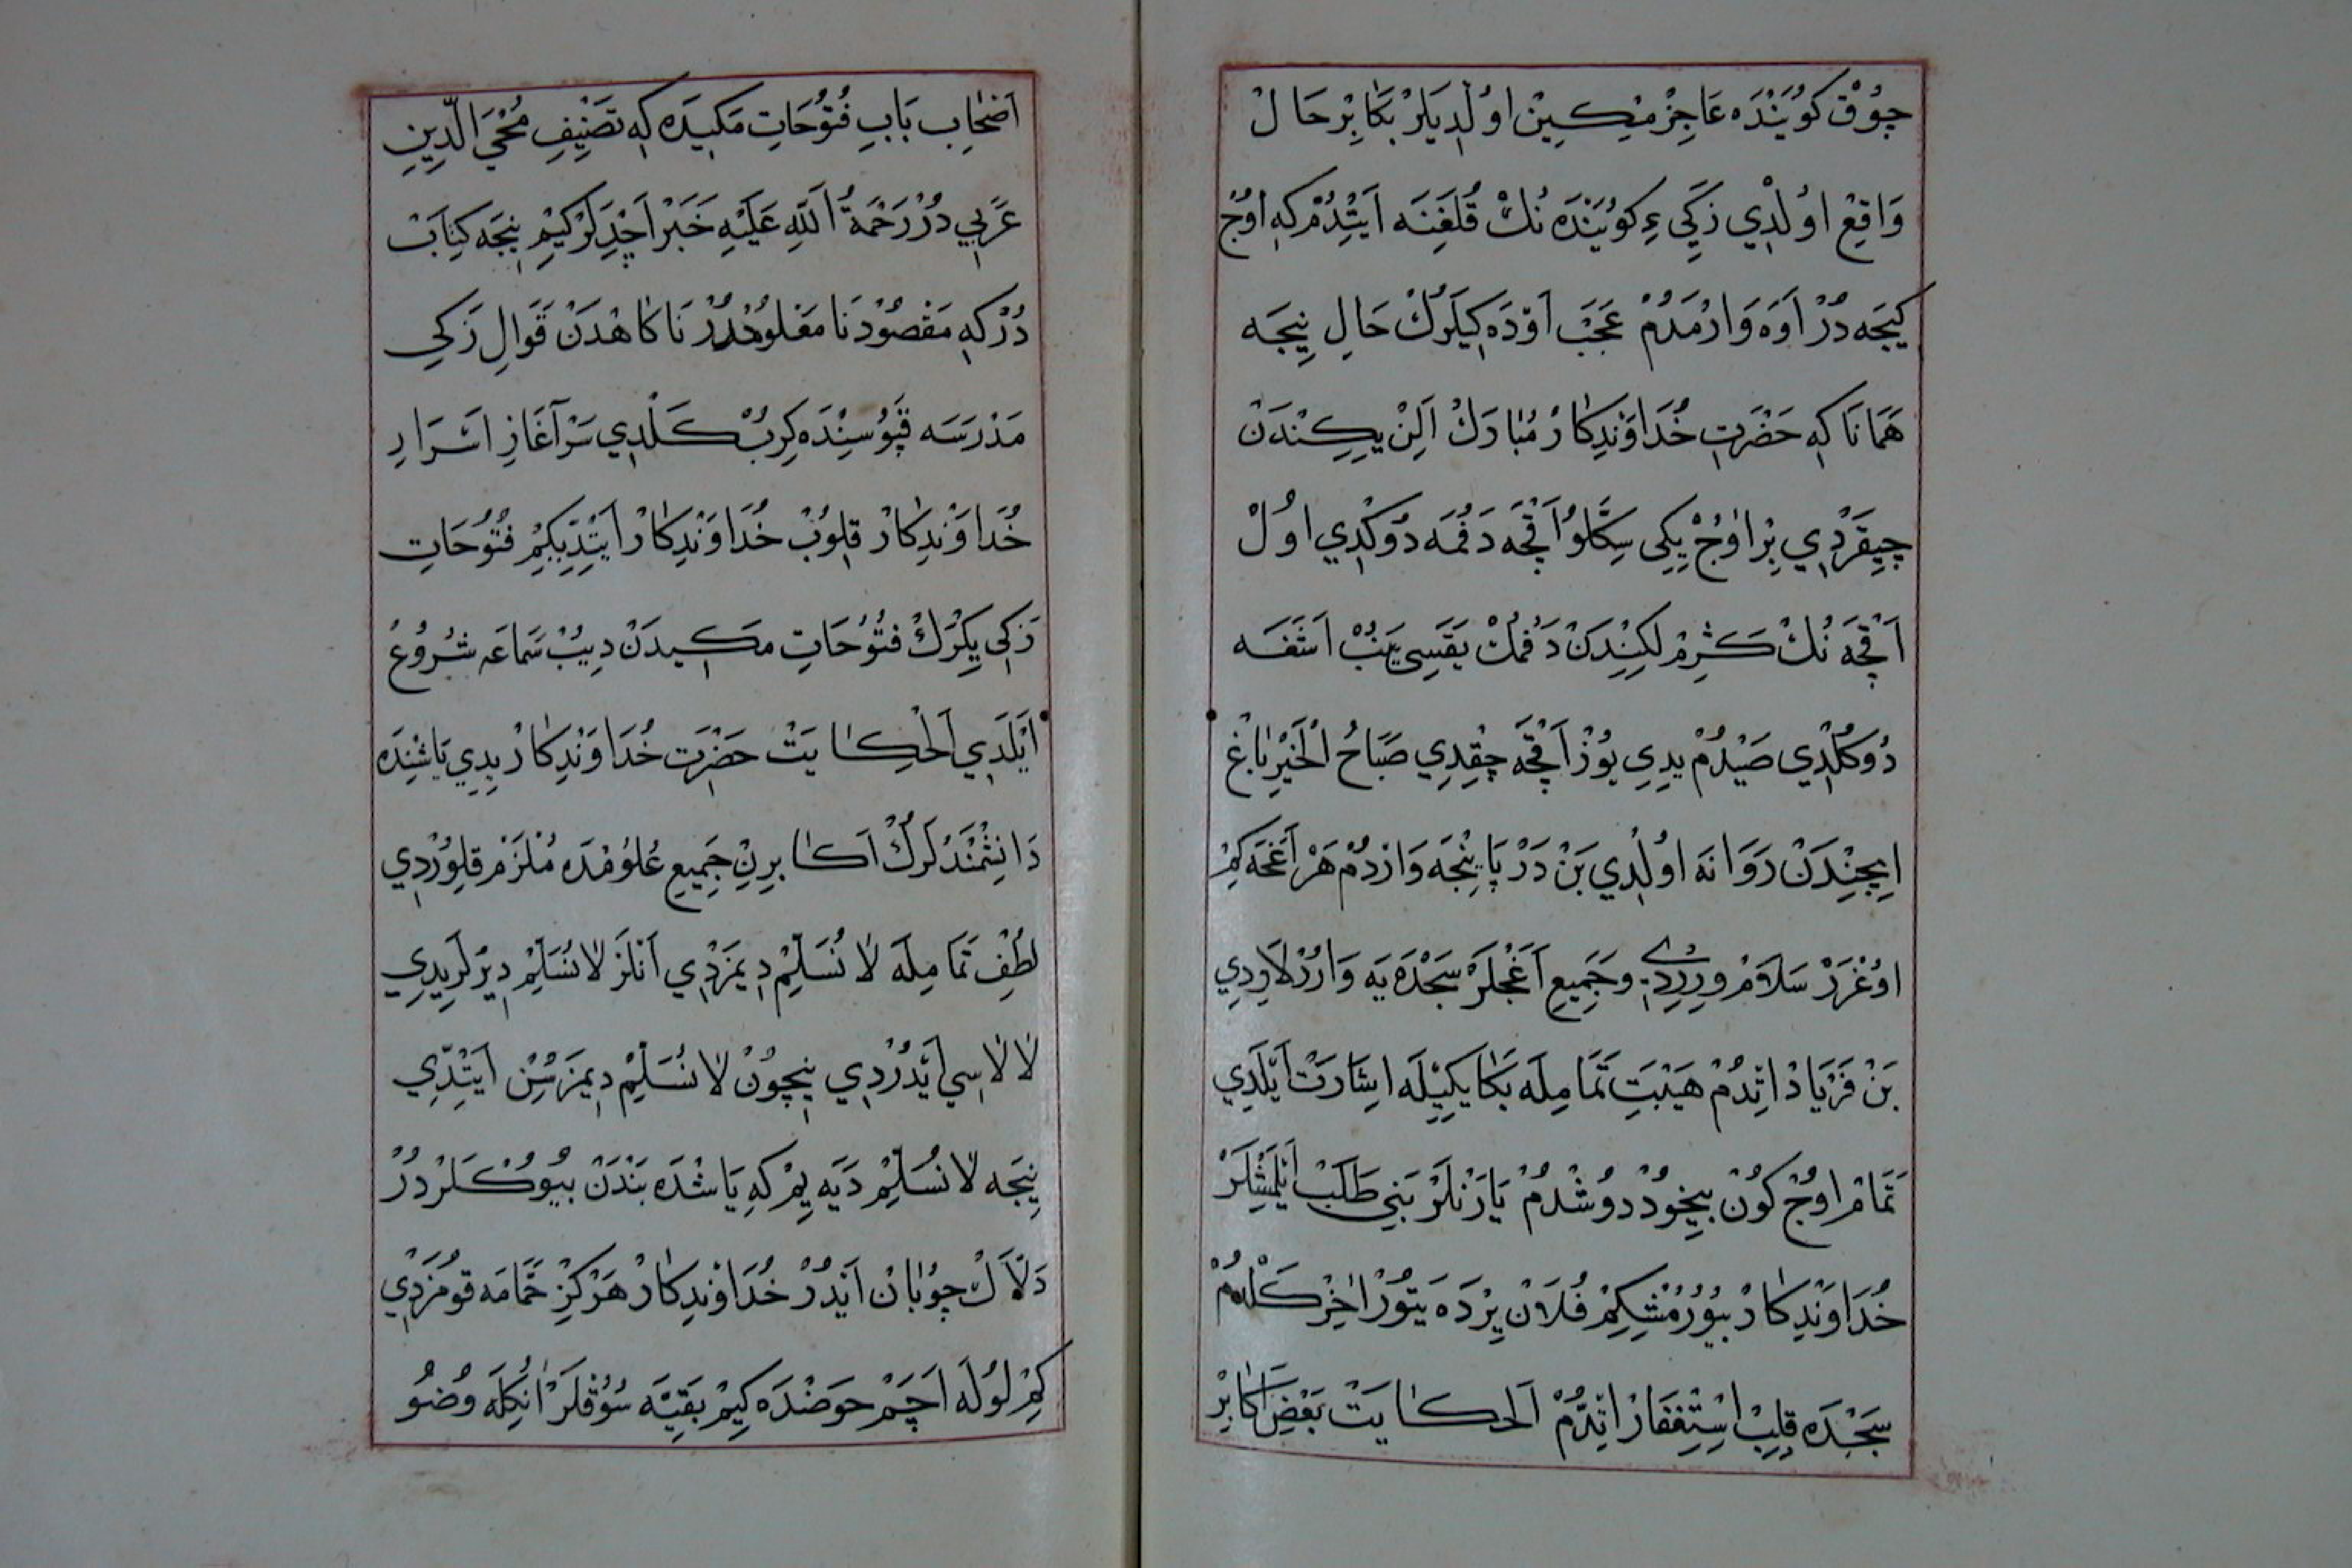 جُوْقْ كُویَنْدَه عَاجِزْ مِسْكِینْ اوُلْدِیلَرْ بَكَا بِرْ حَالْ
وَاقِعْ اوُلْدِي زَكِيءِ كُویَنْدَه نُكْ قُلَغِنَه اَیْتْدُمْ كِه اوُجْ
كِیجَه دُرْ اَوَه وَارْمَدُمْ عَجَبْ اَوْدَه كِیلَرُكْ حَالِ نِیجَه
هَمَانَا كِه حَضْرَتِ خُدَاوَنْدِكَارْ مُبَارَكْ اَلِنْ یِكِنْدَنْ
چِیقَرْدِي بِرْ اوُجْ یِكِي سِكَّلُو اَقْچَه دَفُمَه دُوكْدِي اوُلْ
اَقْچَه نُكْ كَثْرِمْ لِكِنْدَنْ دَفُمُكْ یَقَسِي یَنُبْ اَشَغَه
دُوكُلْدِي صَیْدُمْ یدِي یُوزْ اَقْچَه چِقْدِي صَبَاحُ الْخَیْرِ بَاغْ
اِیچِنْدَنْ رَوَانَه اوُلْدِي بَنْ دَرْ پَایِنْجَه وَارْدُمْ هَرْ اَغَجَه كِمْ
اوُغْرَرْ سَلَامْ وِرِرْدِي وَجَمِیعِ اَغْجْلَرْ سَجْدَه یَه وَارُرْلَرْدِي
بَنْ فَرْیَادْ اتِدُمْ هَیْبَتِ تَمَامِلَه بَكَا یكِیْلَه اِشَارَتْ اَیْلَدِي
تَمَامْ اوُجْ كُونْ بِیخُودْ دوُشْدُمْ یَارَنْلَرْ بَنِي طَلَبْ اَیْلَمِشْلَرْ
خُدَاوَنْدِكَارْ بُیُورْمُشْكِمْ فُلَانْ یِرْدَه یَتُورْ اٰخِرْ كَلْدُمْ
سَجْدَه قِلِبْ اِسْتِغْفَارْ اتِدُمْ اَلْحِكَایَتْ بَعْضِ اَكَابِرْ
اَصْحَابِ بَابِ فُتُوحَاتِ مَكِیدَه كِه تَصْنِیفِ مُحْيَ الدِّینِ
عَرَبِي دُرْ رَحْمَةُ اللهِ عَلَیْهِ خَبَرْ اَچْدِلَرْ كِیمْ نِیجَه كِتَابْ
دُرْ كِه مَقْصُودْ نَا مَعْلُومْدُرْ نَاكَاهْدَنْ قَوَالِ زَكِي
مَدْرَسَه قَپُوسِنْدَه كِرِبْ كَلْدِي سَرْ آغَازِ اَسْرَارِ
خُدَاوَنْدِكَارْ قِلوُبْ خُدَاوَنْدِكَارْ اَیْتْدِیكِمْ فُتُوحَاتِ
زَكِي یِكْرَكْ فُتُوحَاتِ مَكِیدَنْ دِیبْ سَمَاعَه شُرُوعْ
اَیْلَدِي اَلْحِكَایَتْ حَضْرَتِ خُدَاوَنْدِكَارْ یدِي یَاشِنْدَه
دَانِشْمَنْدْلَرُكْ اَكَابِرِنْ جَمِیعِ عُلُومْدَه مُلْزَمْ قِلوُرْدِي
لُطْفِ تَمَامِلَه لَا نُسَلِّمْ دِیمَزْدِي اَنْلَرْ لَا نُسَلِّمْ دِیرْلَرِیدِي
لَالَاسِي اَیْدُرْدِي نِیچُونْ لَا نُسَلِّمْ دِیمَزْسِنْ اَیْتْدِي
نِیجَه لَا نُسَلِّمْ دَیَه یِمْ كِه یَاشْدَه بَنْدَنْ بُیُوكْلَرْدُرْ
دَلَّاكْ چُوبَانْ اَیْدُرْ خُدَاوَنْدِكَارْ هَرْكِزْ حَمَّامَه قُومَزْدِي
كِمْ لُولَه اَچَمْ حَوضْدَه كِیمْ بَقِیَّه سُوقْلَرْ اَنُكِلَه وُضُو